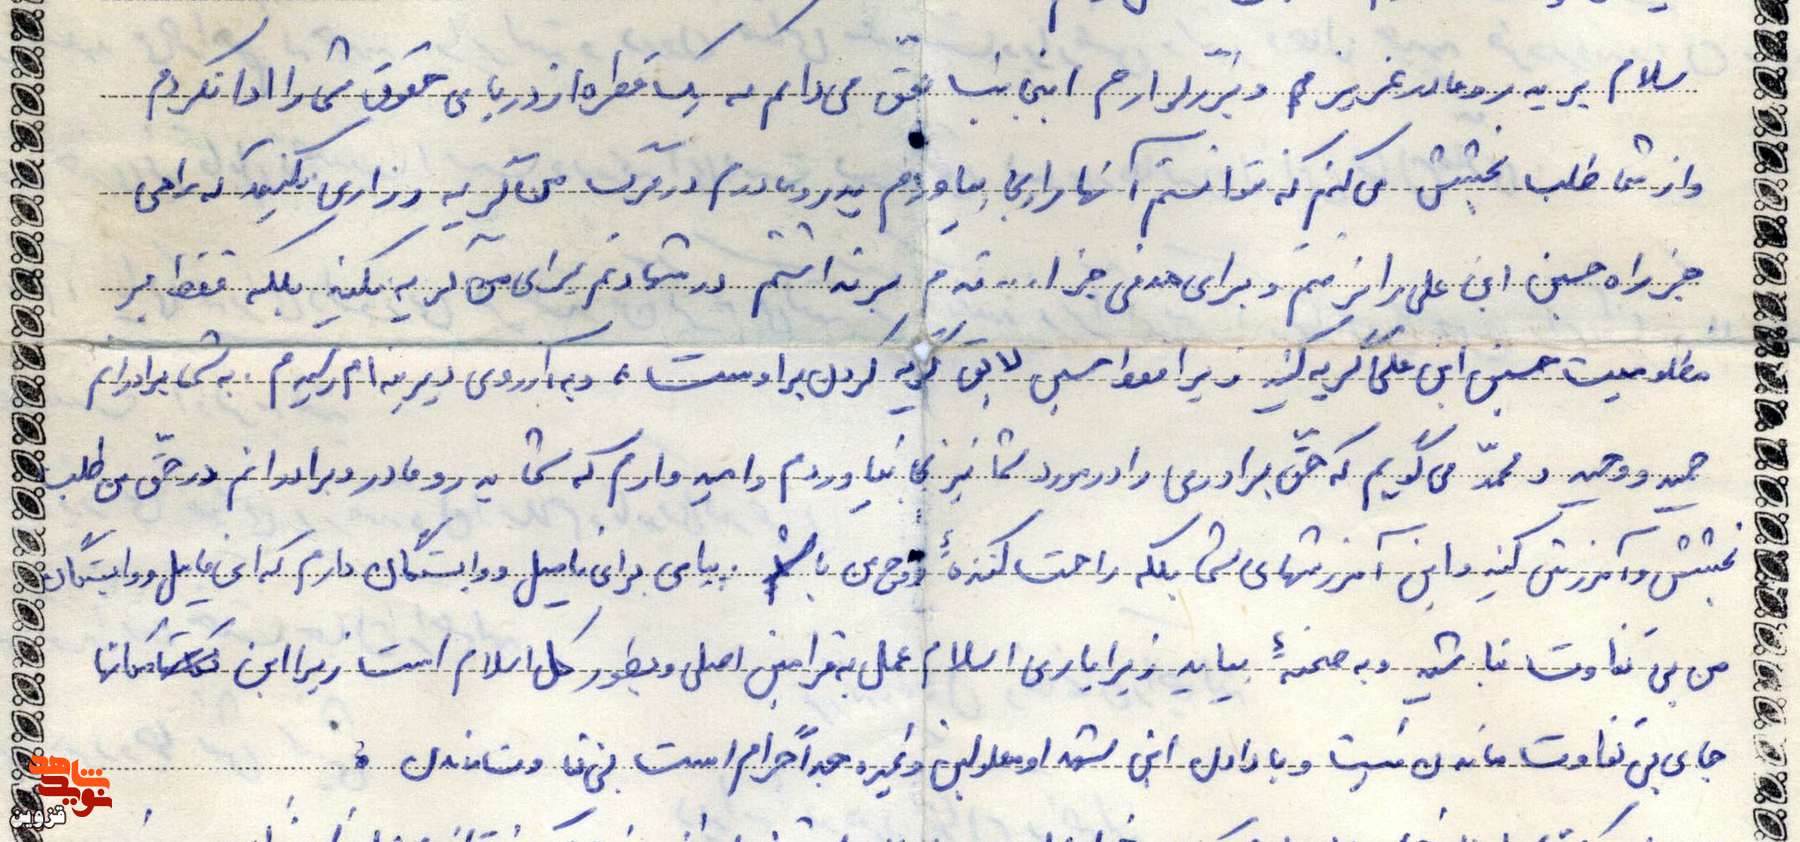 سلام بر پدر و مادر عزیزم و بزرگوارم اینجانب می‌دانم که یک قطره از دریای حقوق شما را ادا نکردم
و از شما طلب بخشش می‌کنم که نتوانستم آنها را بجا بیاورم پدر و مادرم در مرگ من گریه و زاری نکنید که راهی
جز راه حسین ابن علی را نرفتم و برای هدفی جز ا... قدم برنداشتم در شهادتم برای من گریه نکنید بلکه فقط بر
مظلومیت حسین ابن علی گریه کنید زیرا فقط حسین لایق گریه کردن براوست، و به آرزوی دیرینه‌ام رسیدم. به شما برادرانم
حمید و وحید و محمد می‌گویم که حق برادری را در مورد شما نیز بجا نیاوردم و امیدوارم که شما پدر و مادر و برادرانم در حق من طلب
بخشش و آمرزش کنید و این آمرزشهای شما بلکه راحت کنندهٔ روح من باشد. پیامی برای فامیل و وابستگان دارم که ای فامیل و وابستگان
من بی تفاوت نباشید و به صحنهٔ بیایید زیرا یاری اسلام عمل به فرامین اصلی و بطور کل اسلام است زیرا این
جای بی تفاوت ماندن نیست و با دادن این شهدا و معلولین و غیره جداً حرام است بی تفاوت ماندن
شاهد
نوید
قزوین